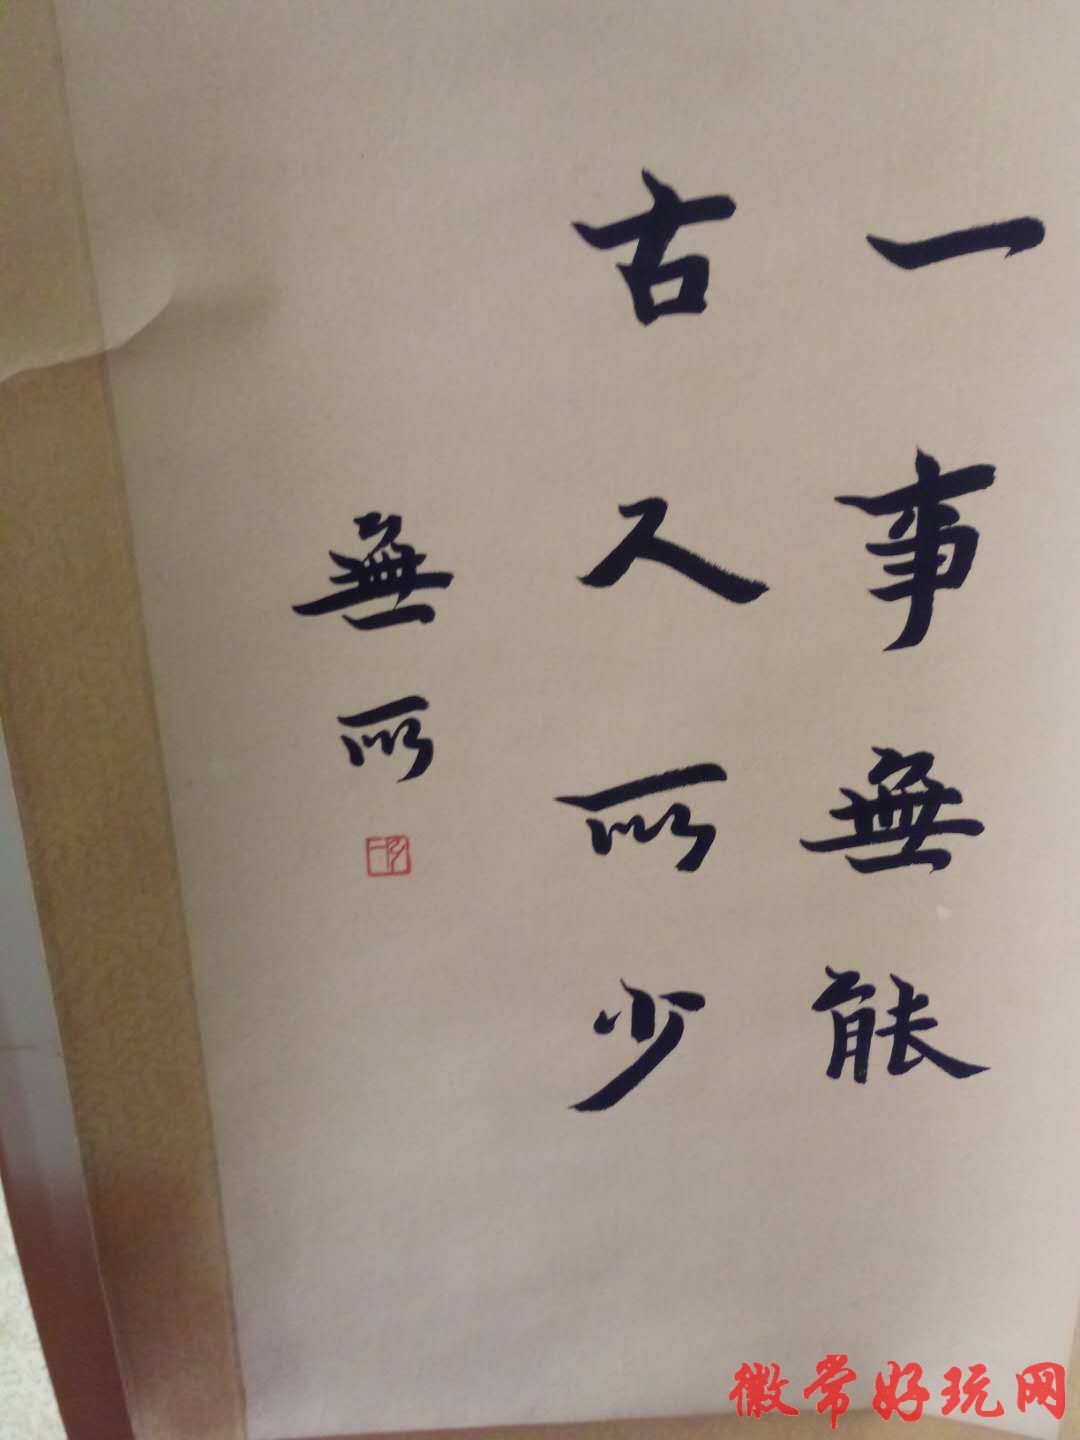 一事無能
古人所少
無所
徽常好玩网